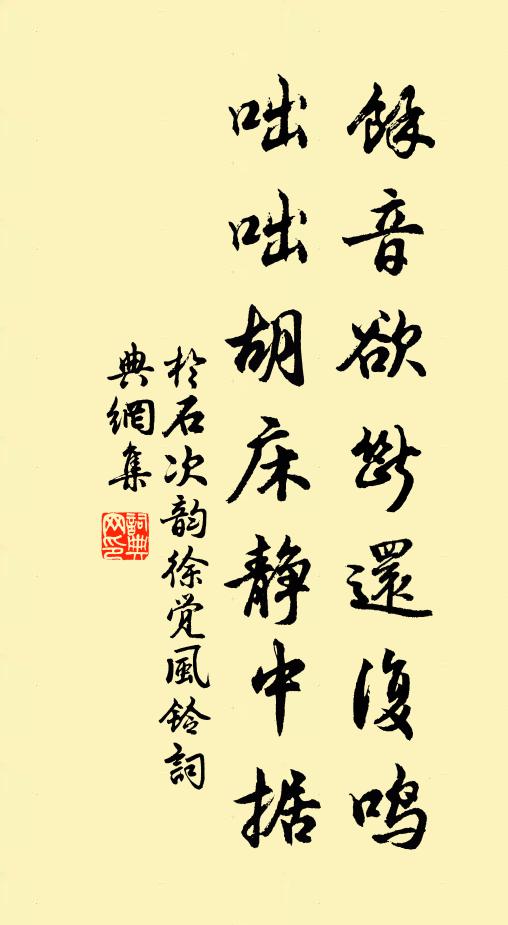 餘音欲斷還復鳴
咄咄胡床靜中据
於石次韵徐觉風鈴詞
典網集
詞典
网印